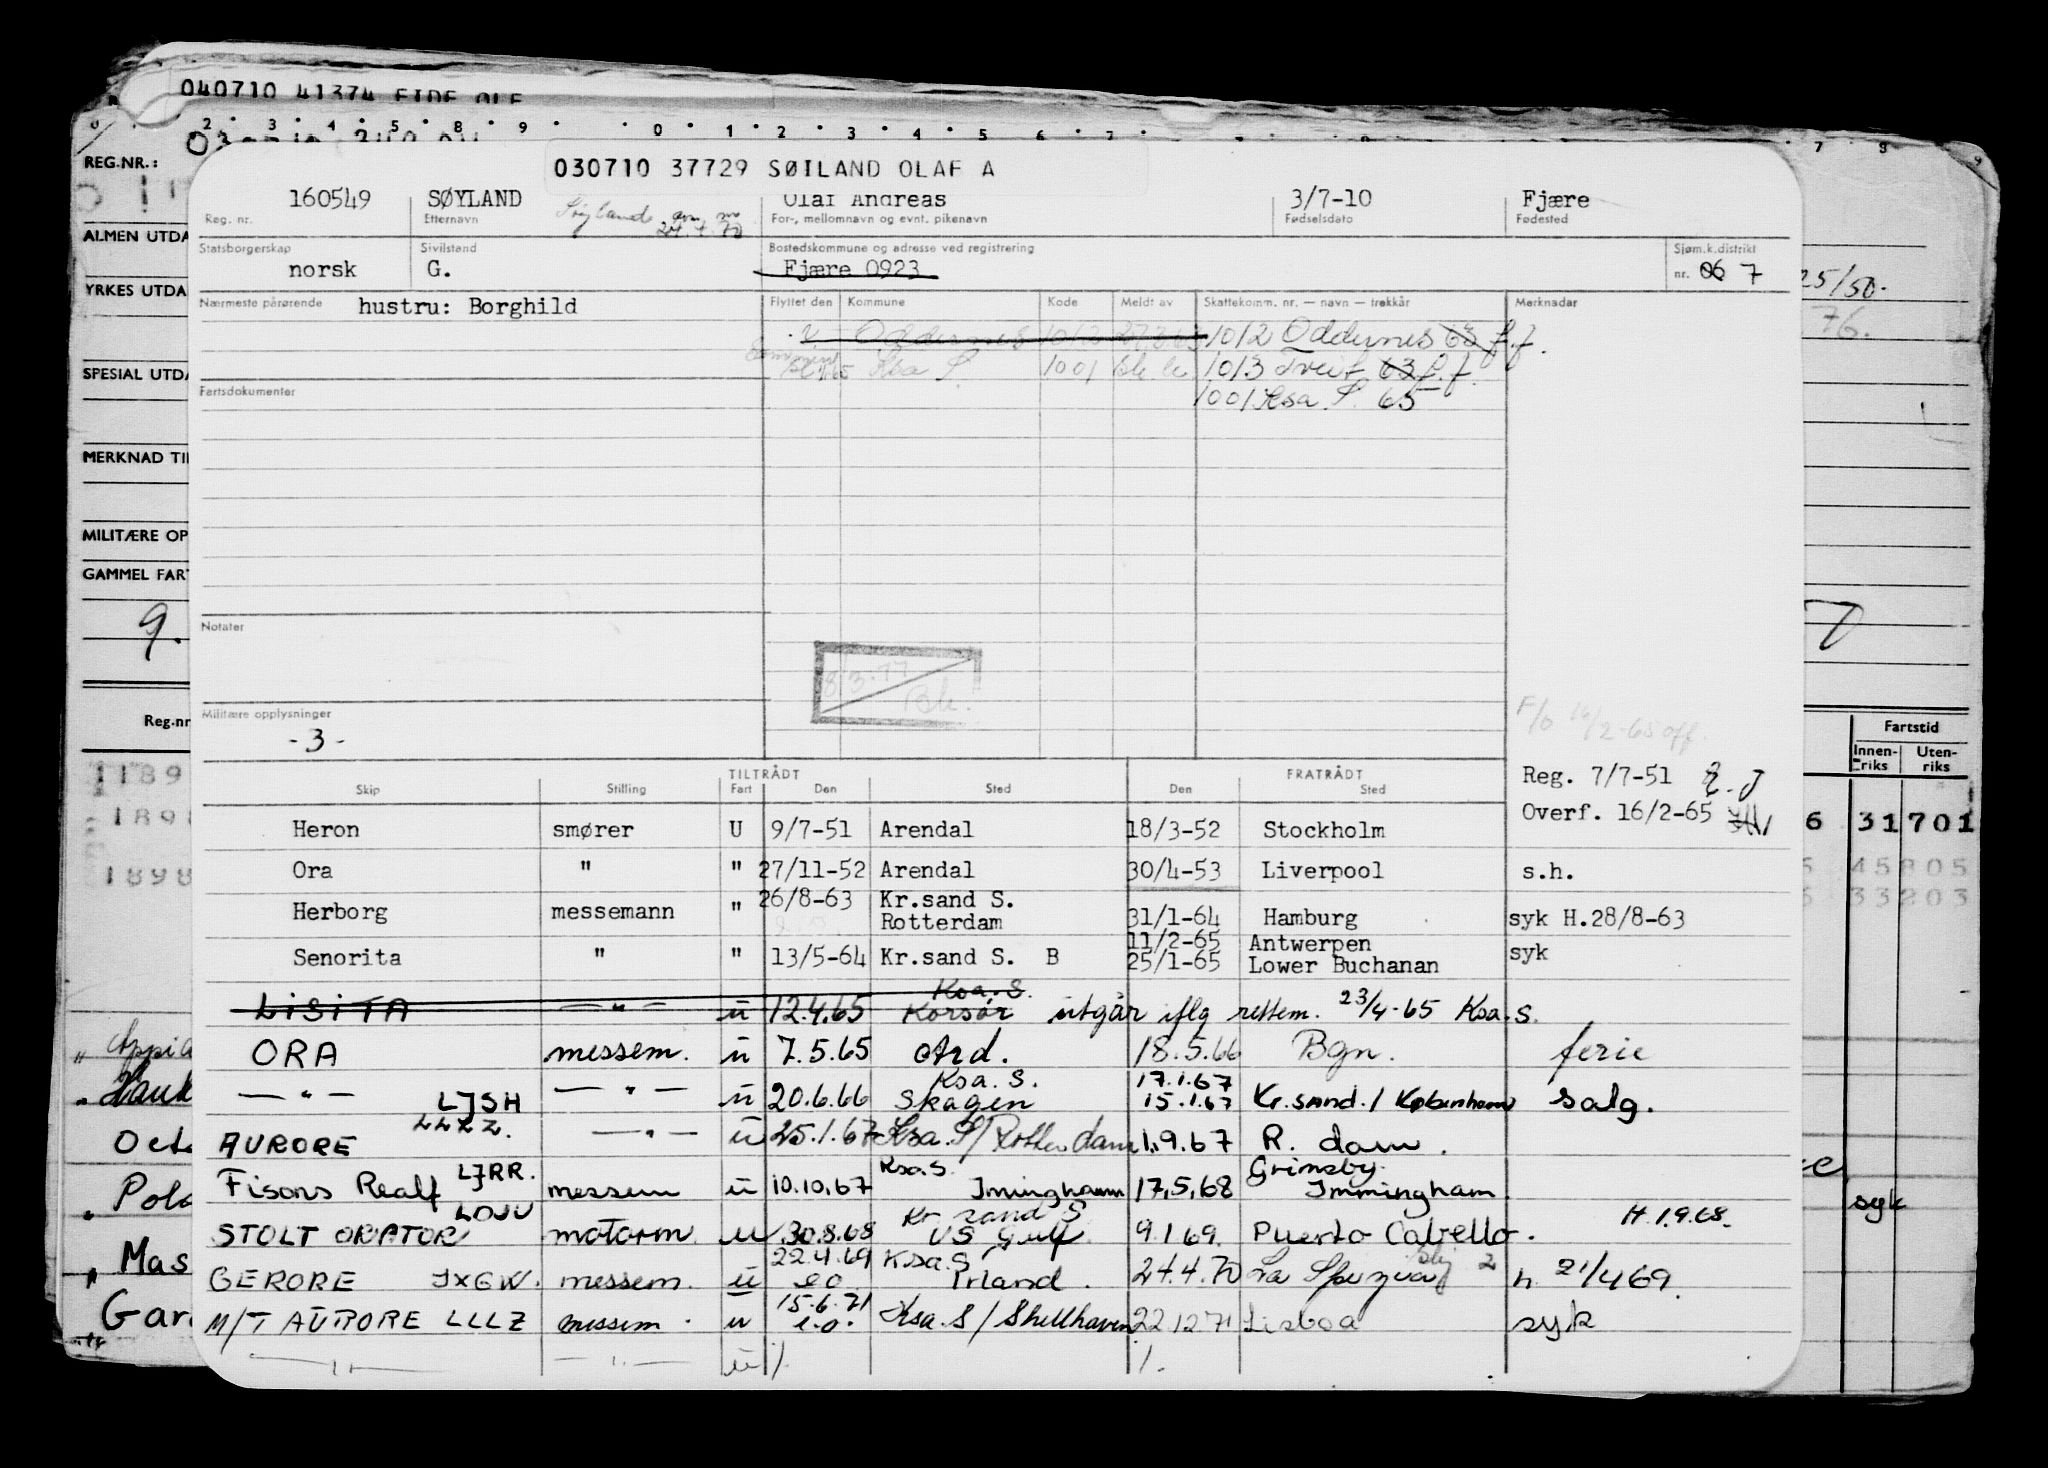 040710 41374 EIDE OLE
2 · 3 · 4 · 5 · 8 · 9 · · 0 · 1 · 2 · 3 · 4 · 5 6 · 7
7 8 9
REG.NR.:
030710 37729 SØILAND OLAF A
160549 SØYLAND Olaf Andreas 3/7-10 Fjære
Reg. nr. Etternavn For-, mellomnavn og evnt. pikenavn Fødselsdato Fødested
ALMEN UTDA
Statsborgerskap Sivilstand Bostedskommune og adresse ved registrering Sjøm.k.distrikt
norsk G. Fjære 0923 nr. 06 7
25/50.
YRKES UTDA
Nærmeste pårørende hustru: Borghild Flyttet den Kommune Kode Meldt av Skattekomm. nr. — navn — trekkår Merknader
76.
Oddernes 1012 1012 Oddernes 63 f.f.
SPESIAL UTDA
Ksa S. 1001 1013 Tveit 63 f.f.
Fartsdokumenter 1001 Ksa. S. 65
MERKNAD TI
MILITÆRE OP
GAMMEL FAR
9.
Notater
8/3.77
Bk.
Reg.nr
Militære opplysninger
-3-
F/o 16/2-65 off.
Fartstid
Innen-riks Uten-riks
TILTRÅDT FRATRÅDT
Skip Stilling Fart Den Sted Den Sted
Reg. 7/7-51
Overf. 16/2-65
1189
1898
1898
6 31701
45805
33203
Heron smører U 9/7-51 Arendal 18/3-52 Stockholm
Ora " " 27/11-52 Arendal 30/4-53 Liverpool s.h.
Herborg messemann " 26/8-63 Kr.sand S. Rotterdam 31/1-64 Hamburg syk H.28/8-63
Senorita " " 13/5-64 Kr.sand S. B 11/2-65 25/1-65 Antwerpen Lower Buchanan syk
LISITA — " — u 12.4.65 Ksa. S. Korsør utgår iflg rettem. 23/4-65 Ksa. S.
ORA messem. u 7.5.65 Ard. 18.5.66 Bgn. ferie
— " — LJSH — " — u 20.6.66 Ksa. S. Skagen 17.1.67 15.1.67 Kr.sand. / København salg.
AURORE LLLZ. — " — u 25.1.67 Ksa. S/ Rotterdam 1.9.67 R. dam.
Fisons Realf LJRR. messem u 10.10.67 Ksa.S. Iminghamn 17.5.68 Grimsby Immingham
STOLT ORATOR LOJU motorm. u 30.8.68 Kr sand S US Gulf 9.1.69. Puerto Cabello. H. 1.9.68.
GERORE JXGW. messem. u 22.4.69 e.o Ksa. S. Irland. 24.4.70 La Spezia h. 21/4 69.
M/T AURORE LLLZ messem. u 15.6.71 e.o. Ksa. S / Shellhaven 22.12.71 Lisboa syk
— " — — " — u %. %.
Octa
Pola
Mas
Gar
syk